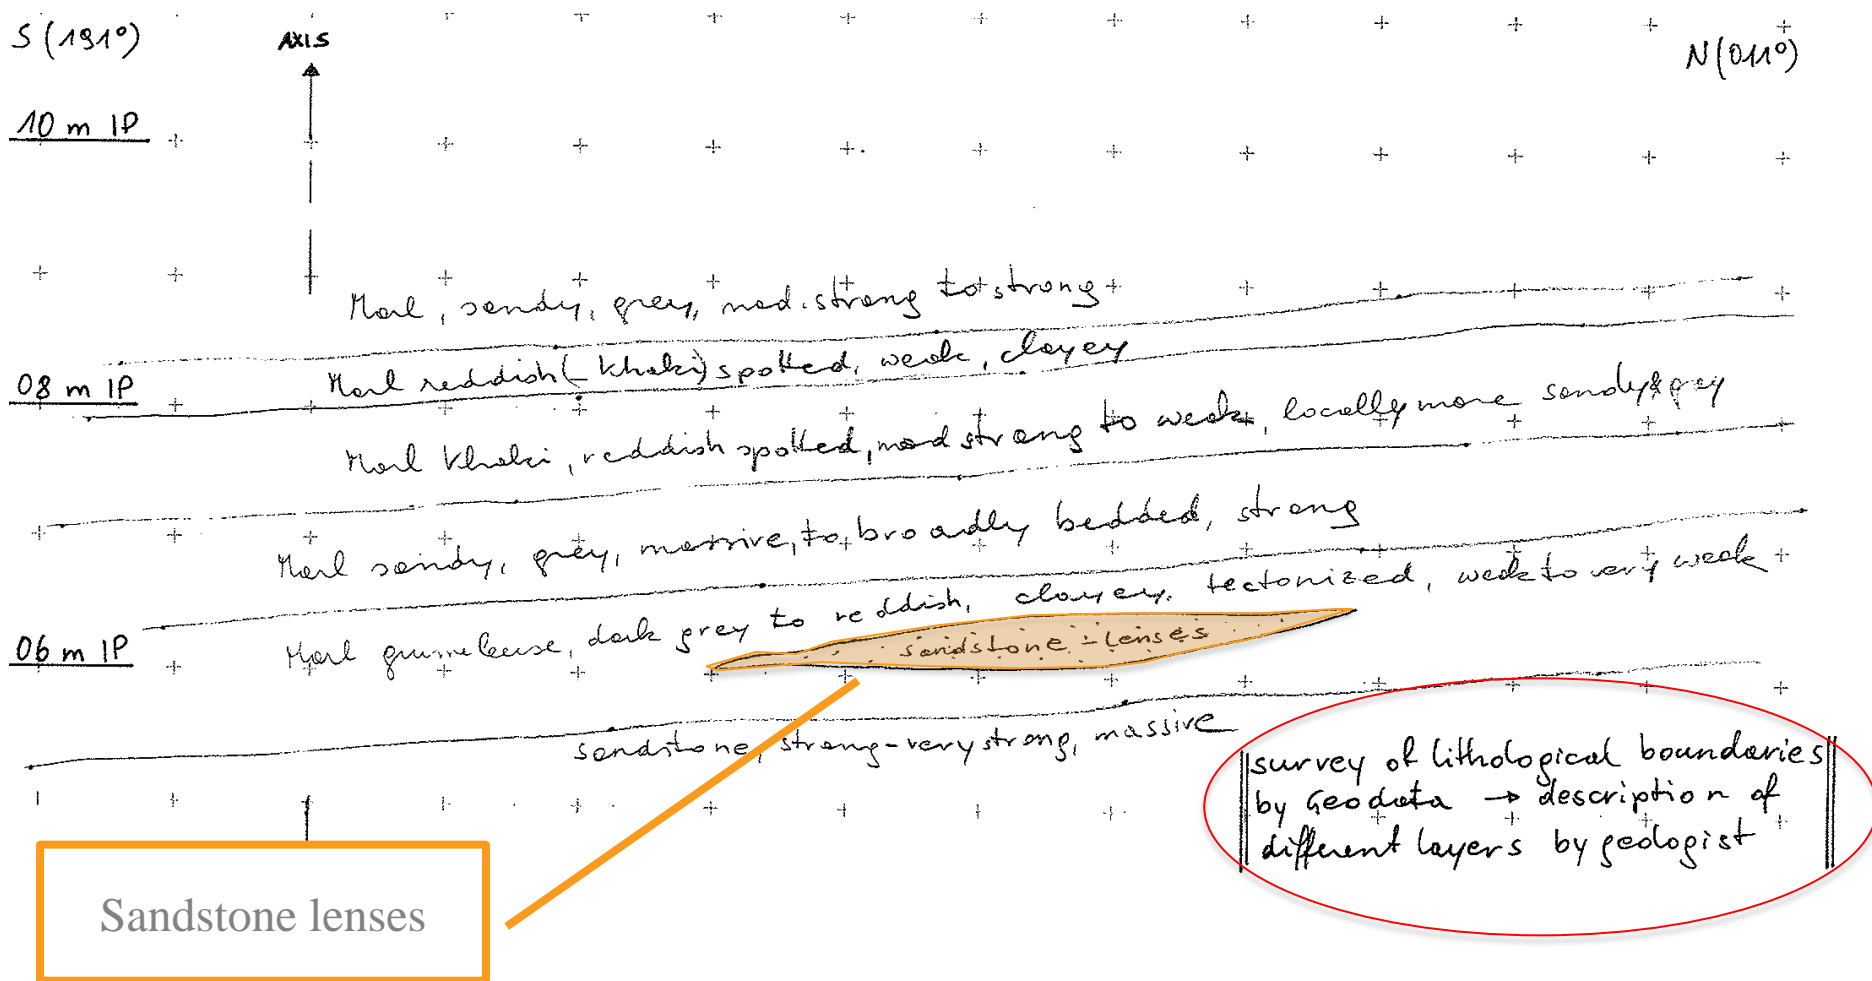 S (191°)
AXIS
N (011°)
10 m IP
Marl, sandy, grey, mod. strong to strong
08 m IP
Marl reddish (- khaki) spotted, weak, clayey
Marl khaki, reddish spotted, mod strong to weak, locally more sandy & grey
Marl sandy, grey, massive, to broadly bedded, strong
06 m IP
Marl grumeleuse, dark grey to reddish, clayey, tectonized, weak to very weak
sandstone - lenses
sandstone, strong-very strong, massive
survey of lithological boundaries
by Geodata → description of
different layers by geologist
Sandstone lenses